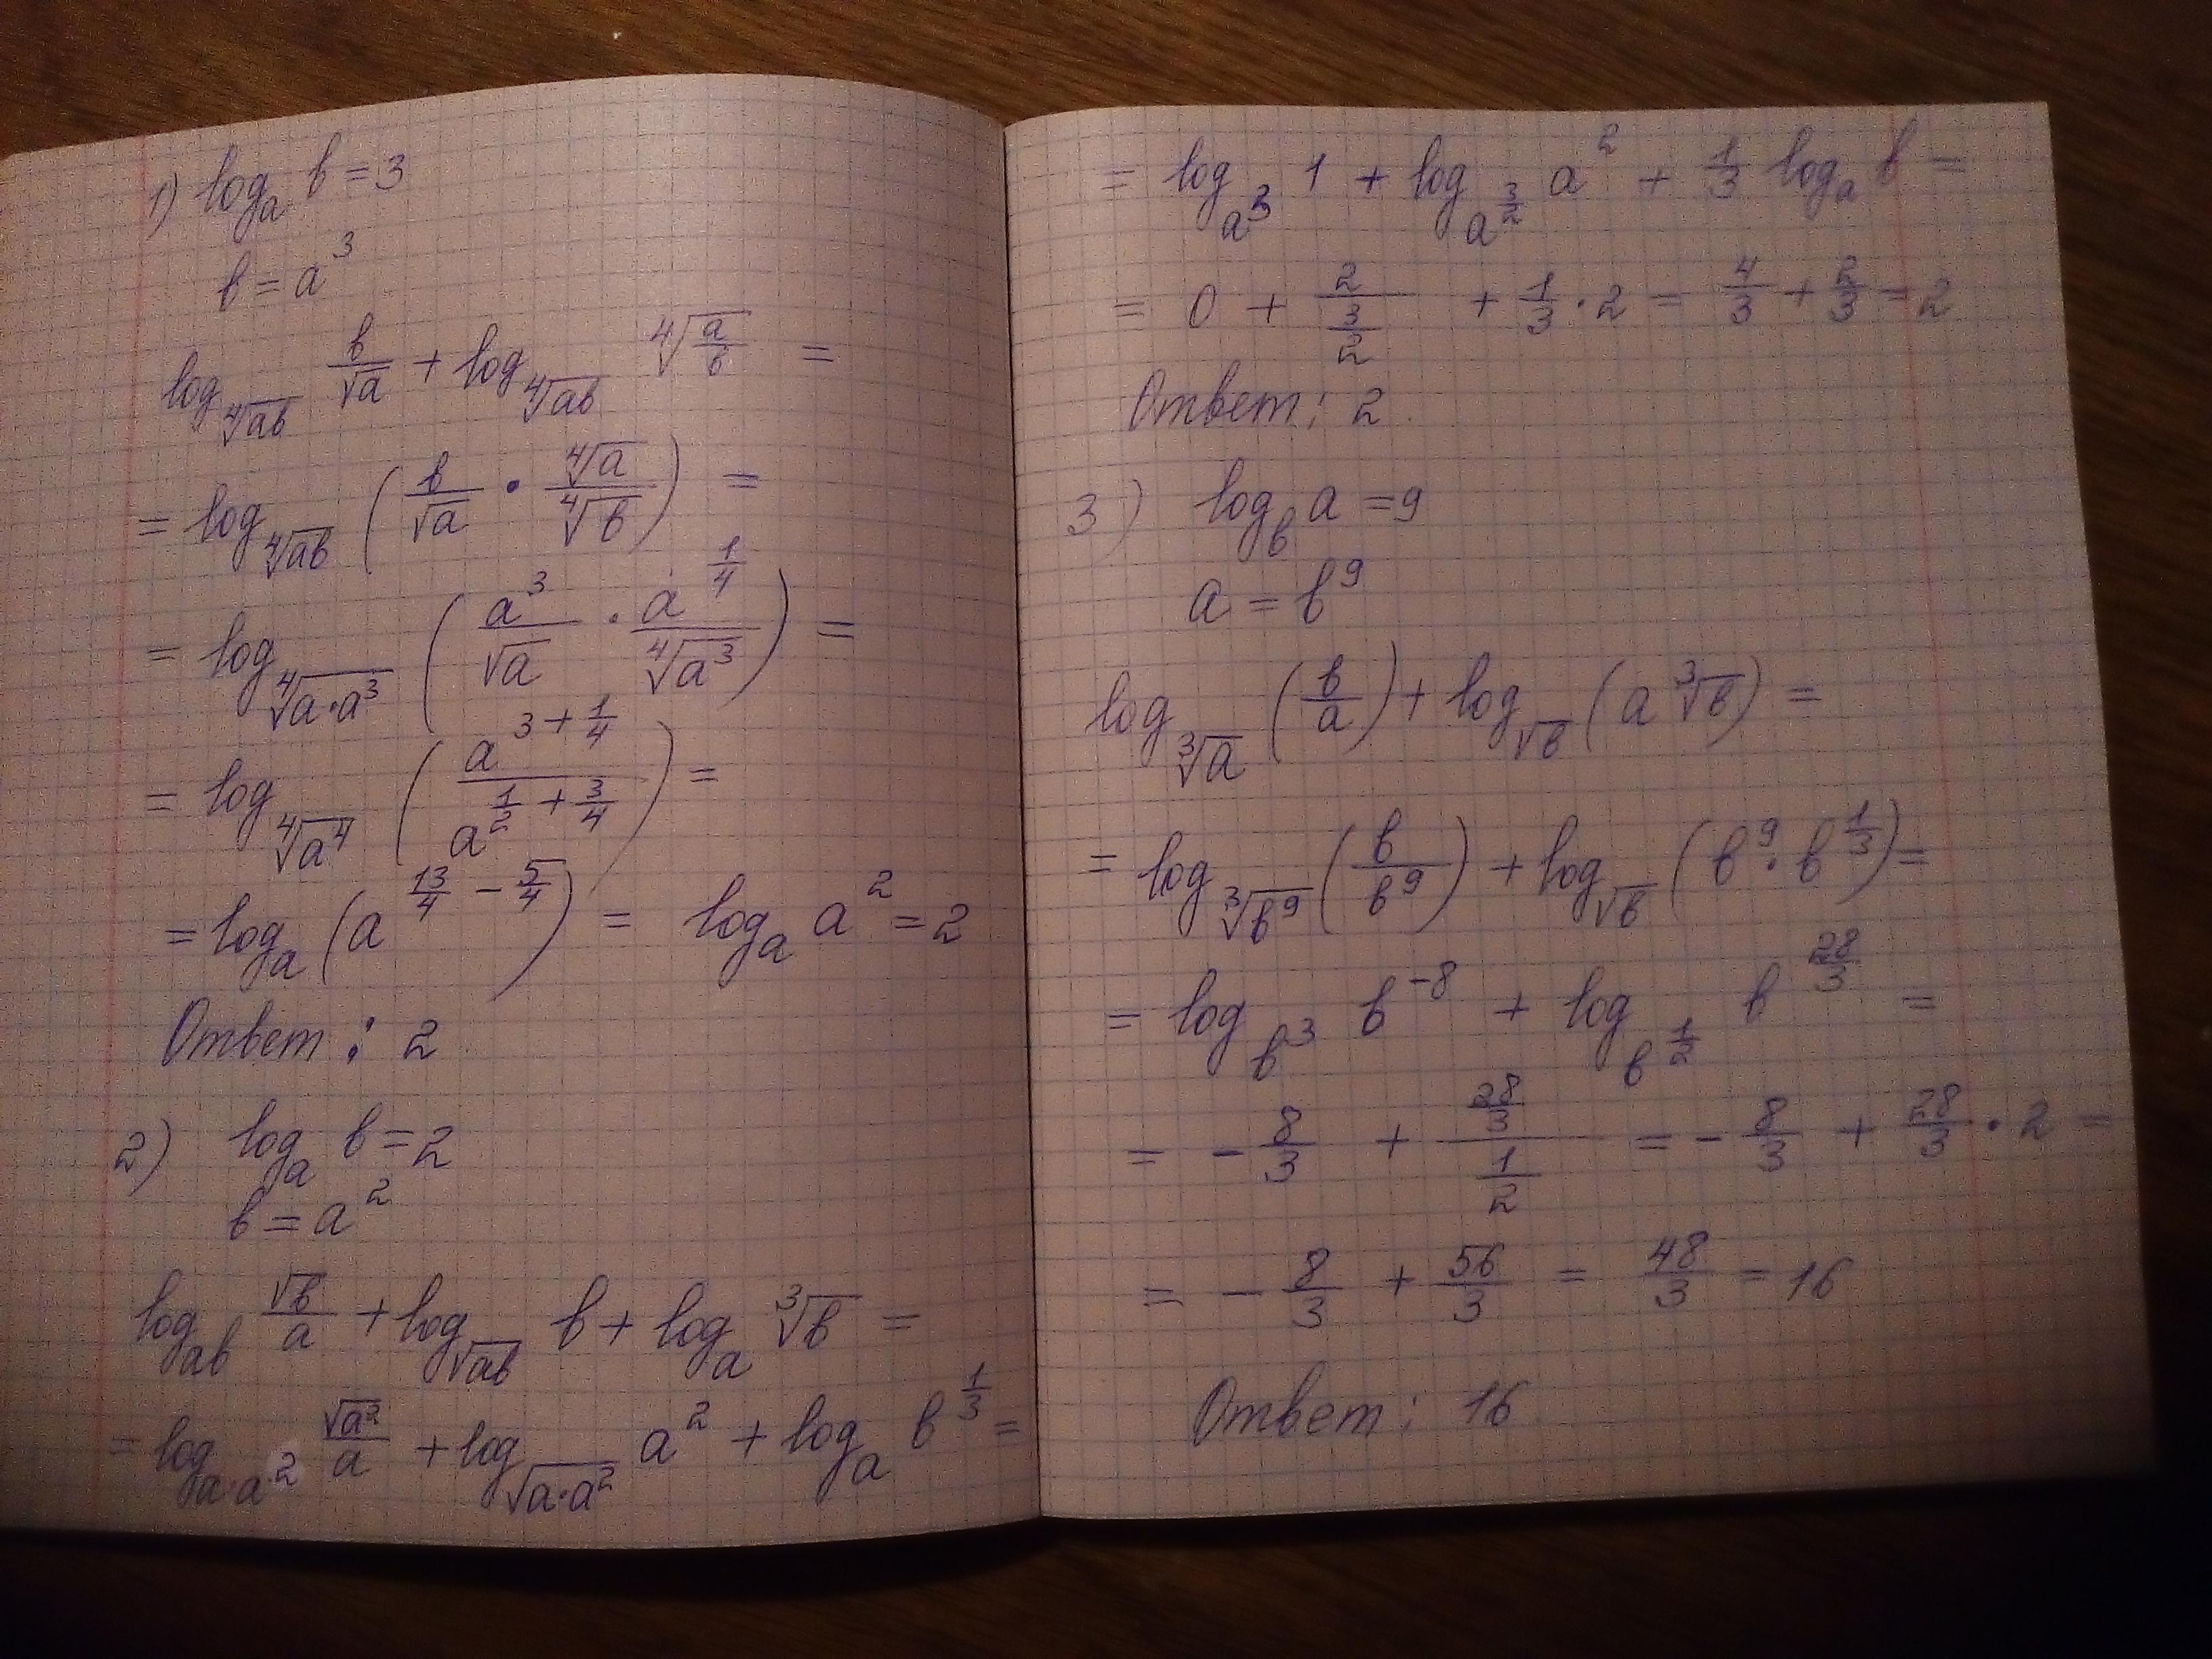 1) log_a в = 3
в = a^3
log_{∜(aв)} в/√a + log_{∜(aв)} ∜(a/в) =
= log_{∜(aв)} (в/√a · ∜a/∜в) =
= log_{∜(a·a^3)} (a^3/√a · a^{1/4}/∜(a^3)) =
= log_{∜(a^4)} (a^{3+1/4}/a^{1/2+3/4}) =
= log_a (a^{13/4 - 5/4}) = log_a a^2 = 2
Ответ: 2
2) log_a в = 2
в = a^2
log_{aв} √в/a + log_{√(aв)} в + log_a ∛в =
= log_{a·a^2} √(a^2)/a + log_{√(a·a^2)} a^2 + log_a в^{1/3} =
= log_{a^3} 1 + log_{a^{3/2}} a^2 + 1/3 log_a в =
= 0 + 2/(3/2) + 1/3 · 2 = 4/3 + 2/3 = 2
Ответ: 2.
3) log_в a = 9
a = в^9
log_{∛a} (в/a) + log_{√в} (a ∛в) =
= log_{∛(в^9)} (в/в^9) + log_{√в} (в^9 · в^{1/3}) =
= log_{в^3} в^{-8} + log_{в^{1/2}} в^{28/3} =
= - 8/3 + (28/3)/(1/2) = - 8/3 + 28/3 · 2 =
= - 8/3 + 56/3 = 48/3 = 16
Ответ: 16